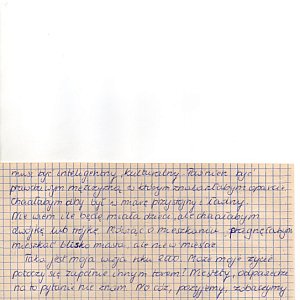 musi być inteligentny, kulturalny. Powinien być
prawdziwym mężczyzną, w którym znalazłabym oparcie.
Chciałabym aby był w miarę przystojny i ładny.
Nie wiem ile będę miała dzieci, ale chciałabym
dwójkę lub trójkę. Mówiąc o mieszkaniu, pragnęłabym
mieszkać blisko miasta, ale nie w mieście.
Taka jest moja wizja roku 2000. Może moje życie
potoczy się zupełnie innym torem? Niestety, odpowiedzi
na to pytanie nie znam. No cóż, pożyjemy, zobaczymy